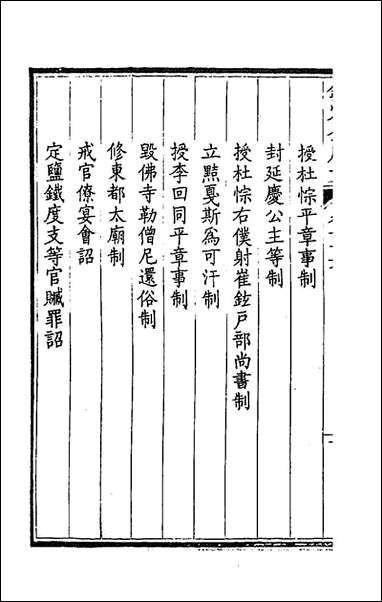 授杜悰平章事制
封延慶公主等制
授杜悰右僕射崔鉉戶部尚書制
立黠戛斯為可汗制
授李回同平章事制
毀佛寺勒僧尼還俗制
修東都太廟制
戒官僚宴會詔
定鹽鐵度支等官贓罪詔